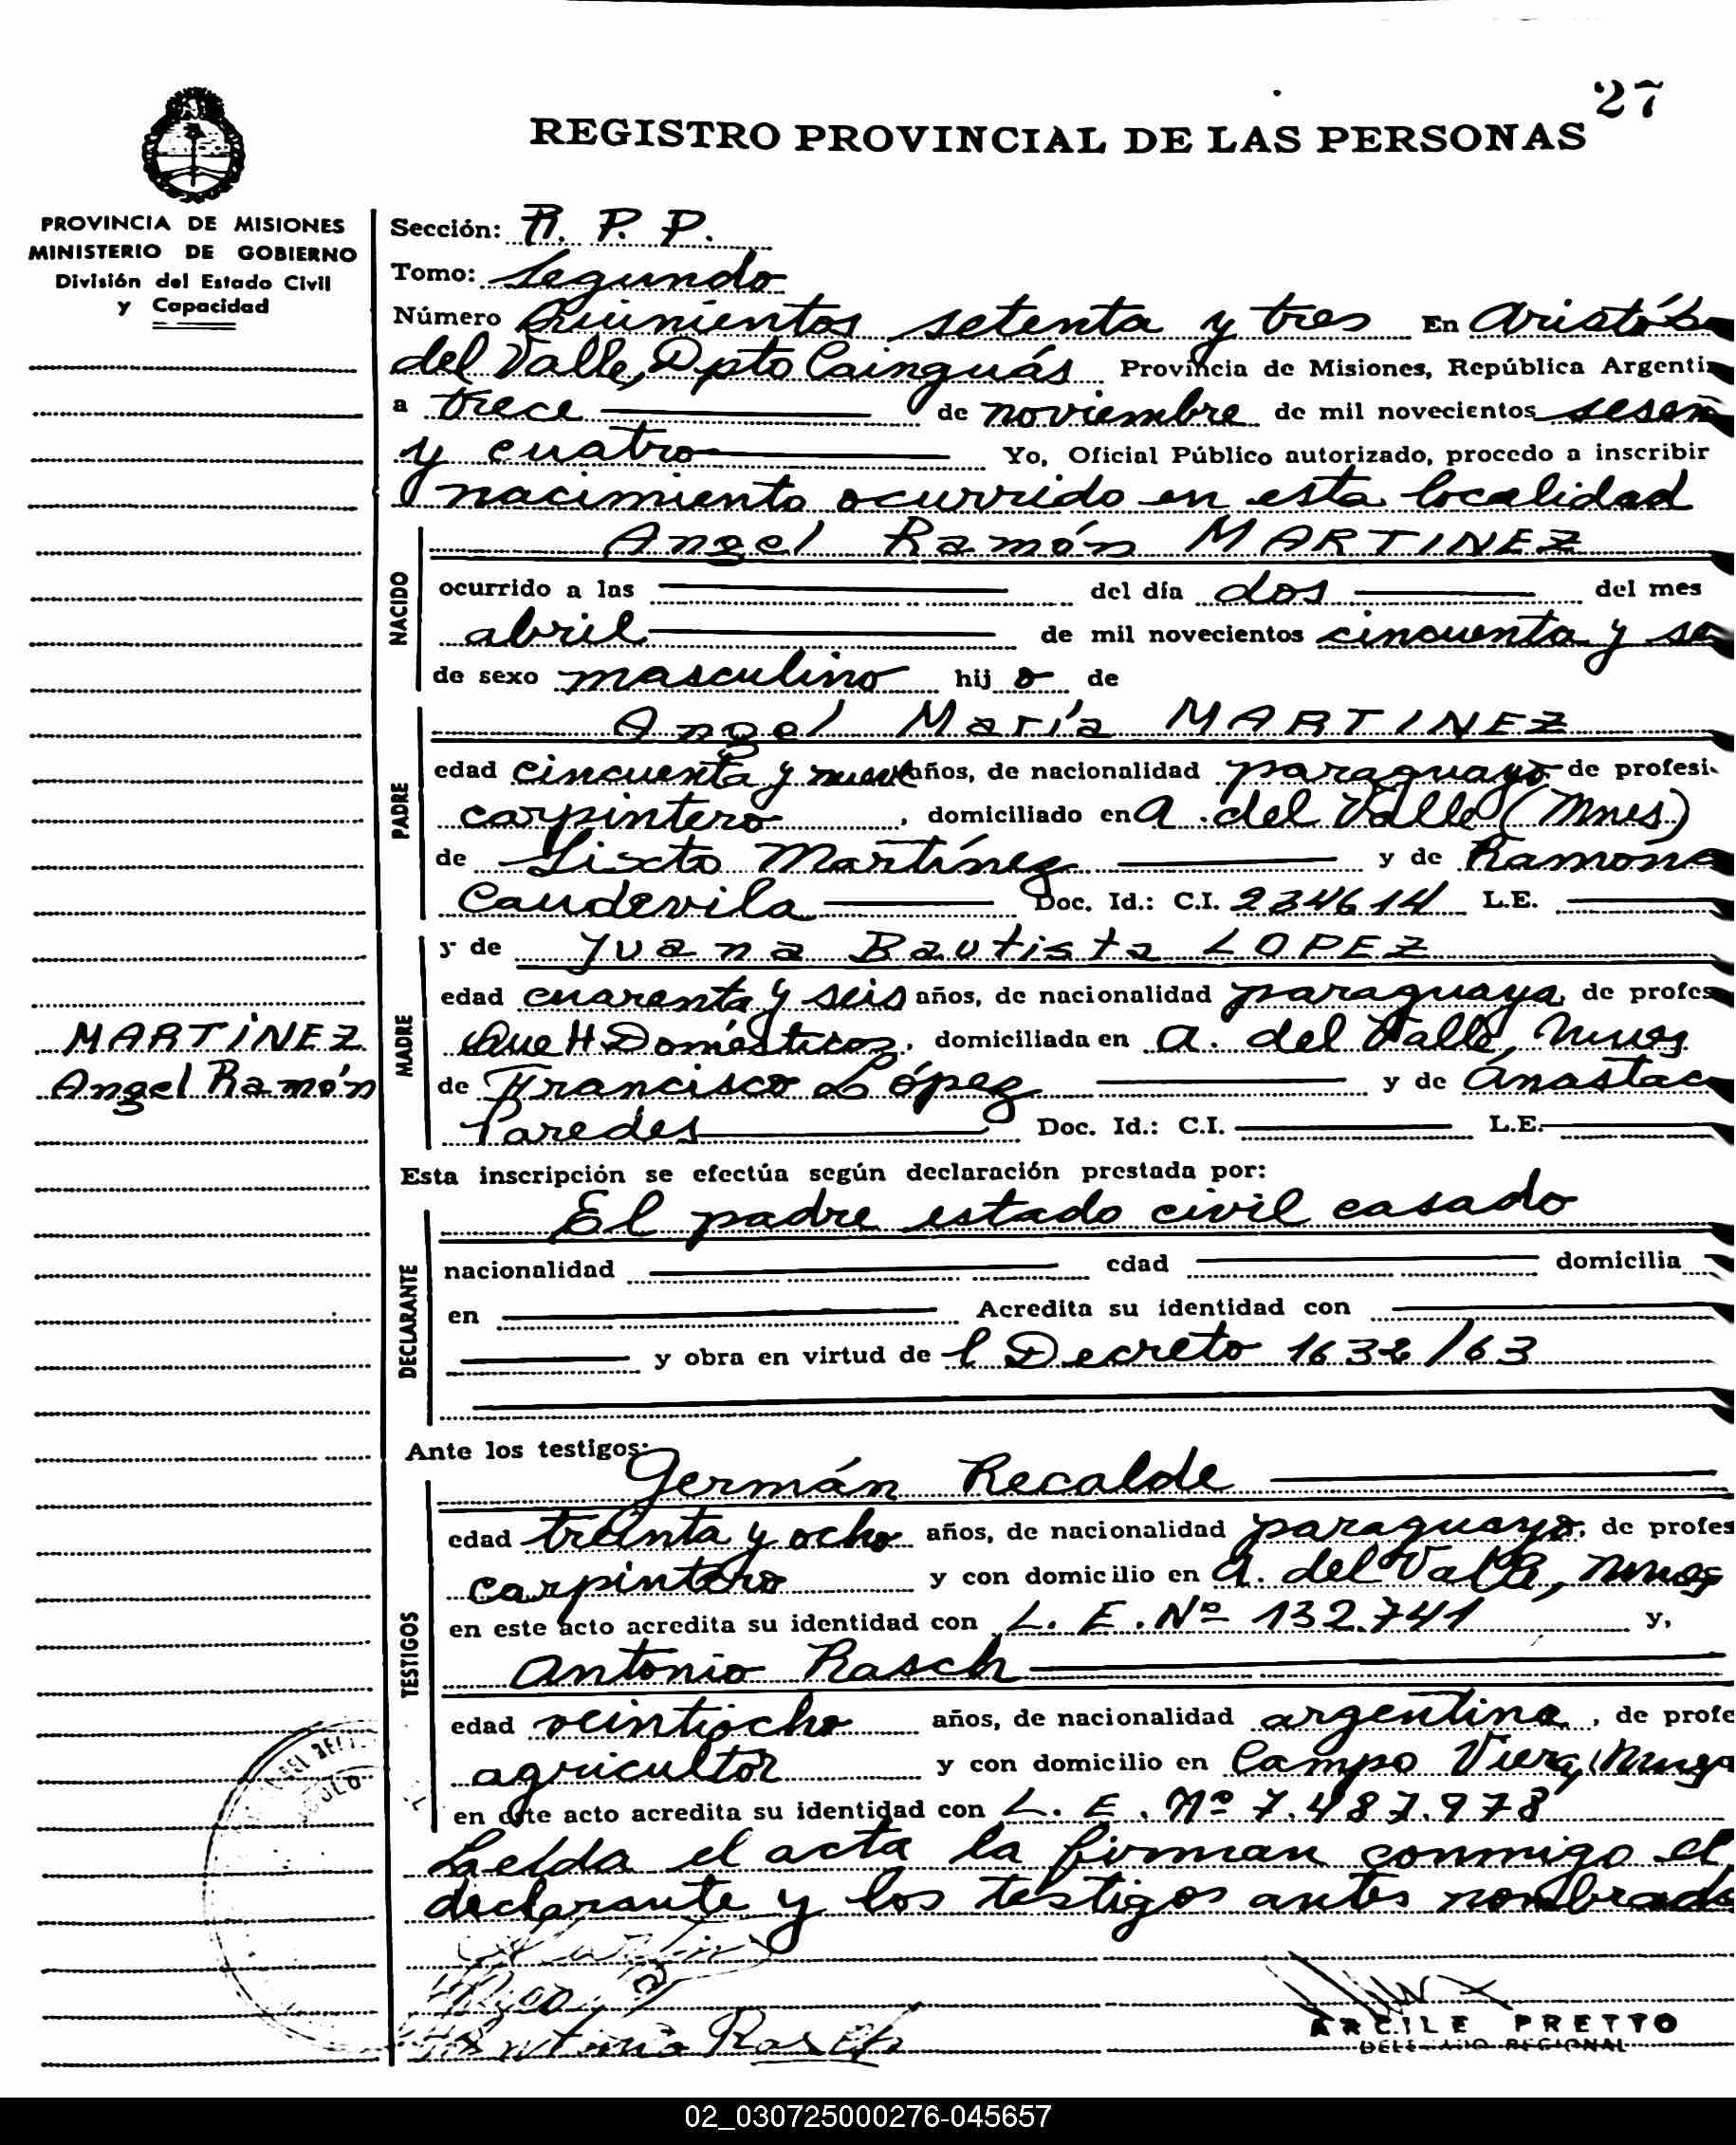 27
REGISTRO PROVINCIAL DE LAS PERSONAS
PROVINCIA DE MISIONES
MINISTERIO DE GOBIERNO
División del Estado Civil
y Capacidad
Sección: R. P. P.
Tomo: Segundo
Número Quinientos setenta y tres En Aristób
del Valle, Dpto Cainguás Provincia de Misiones, República Argenti
a trece de noviembre de mil novecientos sesen
y cuatro Yo, Oficial Público autorizado, procedo a inscribir
nacimiento ocurrido en esta localidad
NACIDO
Angel Ramón MARTINEZ
ocurrido a las del día dos del mes
abril de mil novecientos cincuenta y se
de sexo masculino hij o de
PADRE
Angel María MARTINEZ
edad cincuenta y nueve años, de nacionalidad paraguayo de profesi
carpintero, domiciliado en A. del Valle (Mnes)
de Sixto Martínez y de Ramona
Caudevila Doc. Id.: C.I. 234614 L.E.
MADRE
y de Juana Bautista LOPEZ
edad cuarenta y seis años, de nacionalidad paraguaya de profes
Domésticos, domiciliada en A. del Valle, Mnes
de Francisco López y de Anastac
Paredes Doc. Id.: C.I. L.E.
MARTINEZ
Angel Ramón
Esta inscripción se efectúa según declaración prestada por:
DECLARANTE
El padre estado civil casado
nacionalidad edad domicilia
en Acredita su identidad con
y obra en virtud de l Decreto 1632/63
Ante los testigos:
TESTIGOS
Germán Recalde
edad treinta y ocho años, de nacionalidad paraguayo, de profes
carpintero y con domicilio en A. del Valle, Mnes
en este acto acredita su identidad con L. E. Nº 132.741 y,
Antonio Rasch
edad veintiocho años, de nacionalidad argentina, de profe
agricultor y con domicilio en Campo Viera, Mnes
en este acto acredita su identidad con L. E. Nº 7.487.978
Leída el acta la firman conmigo el
declarante y los testigos antes nombrado
Antonio Rasch
ARCILE PRETTO
DELEGADO REGIONAL
02_030725000276-045657